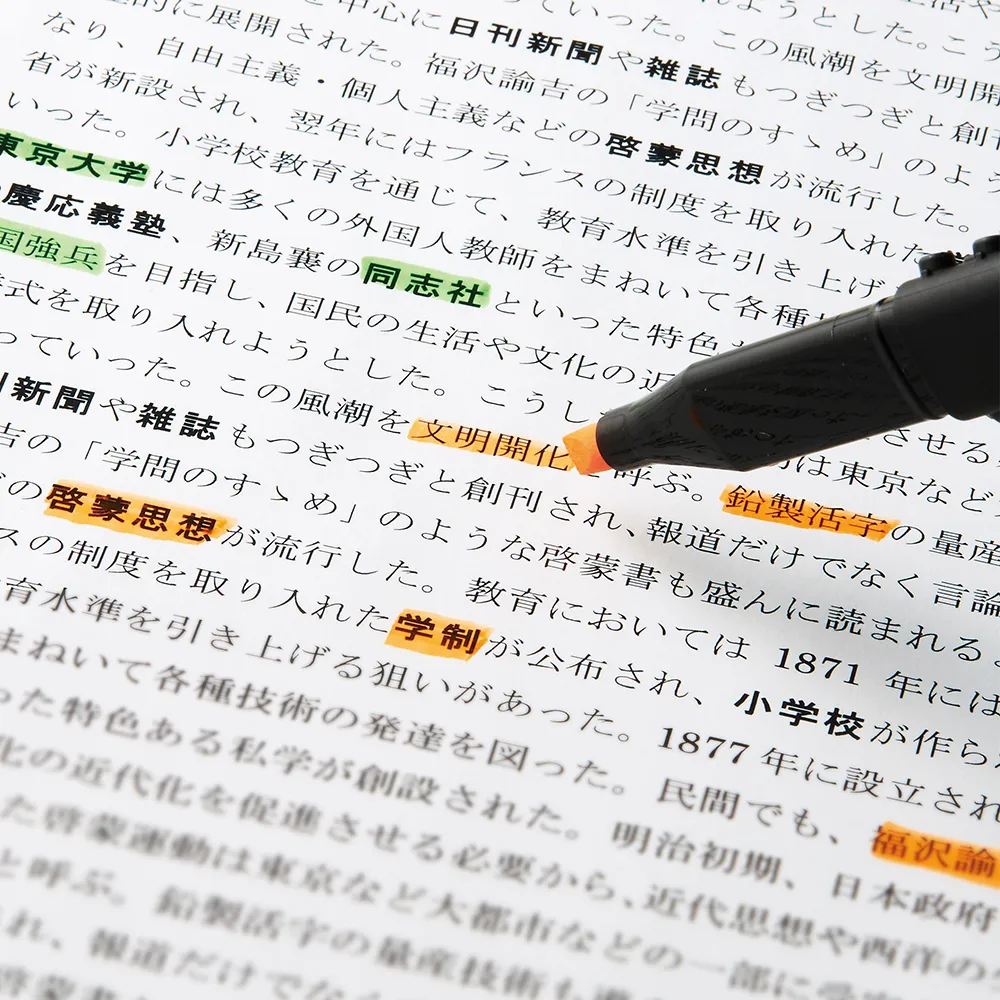 生活や
ようとした。こう
っていった。この風潮を文明開
を中心に日刊新聞や雑誌もつぎつぎと創刊
的に展開された。福沢諭吉の「学問のすゝめ」のよう
なり、自由主義・個人主義などの啓蒙思想が流行した。
省が新設され、翌年にはフランスの制度を取り入れた
いった。小学校教育を通じて、教育水準を引き上げ
東京大学には多くの外国人教師をまねいて各種
慶応義塾、新島襄の同志社といった特色
国強兵を目指し、国民の生活や文化の近 させる
様式を取り入れようとした。こうし は東京など
っていった。この風潮を文明開化と呼ぶ。鉛製活字の量産
刊新聞や雑誌もつぎつぎと創刊され、報道だけでなく言論
吉の「学問のすゝめ」のような啓蒙書も盛んに読まれる
の啓蒙思想が流行した。教育においては 1871 年には
スの制度を取り入れた学制が公布され、小学校が作ら
育水準を引き上げる狙いがあった。1877年に設立され
まねいて各種技術の発達を図った。民間でも、福沢諭
った特色ある私学が創設された。明治初期、日本政府
化の近代化を促進させる必要から、近代思想や西洋の
た啓蒙運動は東京など大都市などの一部に受
と呼ぶ。鉛製活字の量産技術も
れ、報道だけでな
啓蒙書